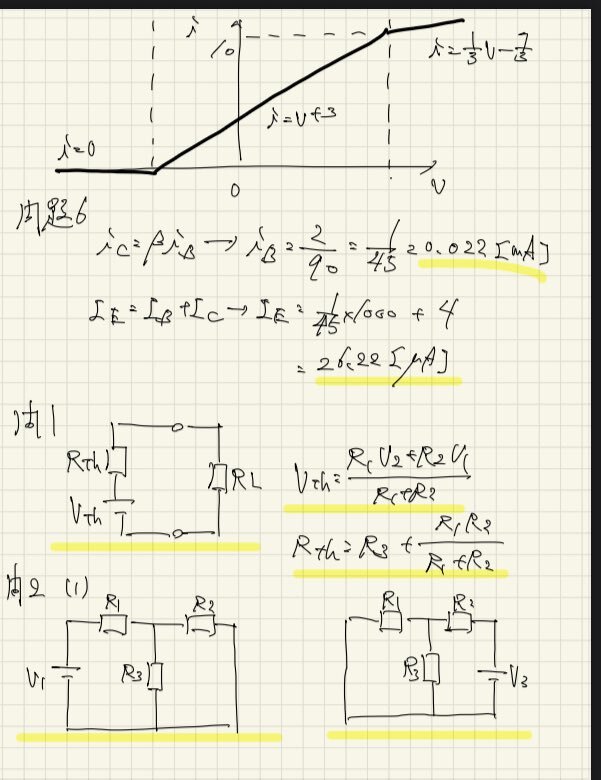 i
10
i=1/3 v-7/3
i=v+3
i=0
0
v
問題6
iC=βiB→iB=2/90=1/45=0.022[mA]
IE=IB+IC→IE=1/45×1000+4
=26.22[μA]
問1
Rth
RL
Vth
Vth=(R1V2+R2V1)/(R1+R2)
Rth=R3+(R1R2)/(R1+R2)
問2 (1)
R1 R2
R3
V1
R1 R2
R3
V3